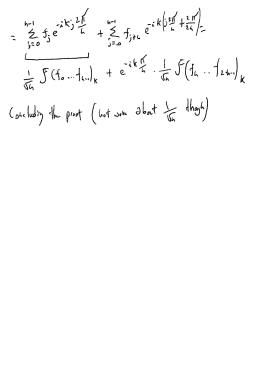 = \sum_{j=0}^{n-1} f_j e^{-ikj\frac{2\pi}{n}} + \sum_{j=0}^{n-1} f_{j+n} e^{-ik\left(j\frac{2\pi}{n}+\frac{2\pi}{2n}\right)} =
\frac{1}{\sqrt{n}} F(f_0 ... f_{n-1})_k + e^{-ik\frac{\pi}{n}} \cdot \frac{1}{\sqrt{n}} F(f_n .. f_{2n-1})_k
Concluding the proof (not sure about \frac{1}{\sqrt{n}} though)